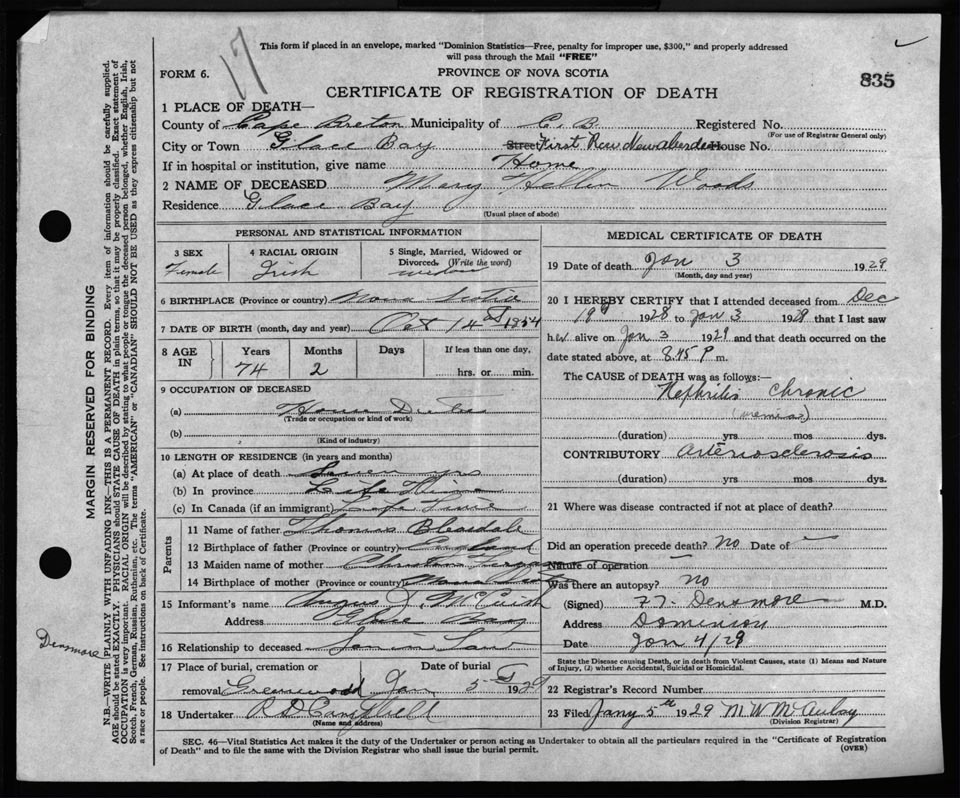 17
This form if placed in an envelope, marked "Dominion Statistics—Free, penalty for improper use, $300," and properly addressed
will pass through the Mail "FREE"
FORM 6.
PROVINCE OF NOVA SCOTIA
835
CERTIFICATE OF REGISTRATION OF DEATH
1 PLACE OF DEATH—
County of Cape Breton Municipality of C. B. Registered No.
(For use of Registrar General only)
City or Town Glace Bay Street First Row New Aberdeen House No.
If in hospital or institution, give name Home
2 NAME OF DECEASED Mary Hellen Woods
Residence Glace Bay
(Usual place of abode)
PERSONAL AND STATISTICAL INFORMATION
3 SEX
Female
4 RACIAL ORIGIN
Irish
5 Single, Married, Widowed or
Divorced. (Write the word)
widow
6 BIRTHPLACE (Province or country) Nova Scotia
7 DATE OF BIRTH (month, day and year) Oct 14 1854
8 AGE IN
Years 74
Months 2
Days
If less than one day,
hrs. or min.
9 OCCUPATION OF DECEASED
(a) House Duties
(Trade or occupation or kind of work)
(b)
(Kind of industry)
10 LENGTH OF RESIDENCE (in years and months)
(a) At place of death yrs
(b) In province Life Time
(c) In Canada (if an immigrant) Life Time
Parents
11 Name of father Thomas Bleasdale
12 Birthplace of father (Province or country) England
13 Maiden name of mother
14 Birthplace of mother (Province or country) Nova Scotia
15 Informant's name Angus J. McCuish
Address Glace Bay
16 Relationship to deceased Son in Law
17 Place of burial, cremation or
removal Greenwood
Date of burial
Jan 5 1929
18 Undertaker R D Campbell
(Name and address)
MEDICAL CERTIFICATE OF DEATH
19 Date of death Jan 3 1929
(Month, day and year)
20 I HEREBY CERTIFY that I attended deceased from Dec
19 1928 to Jan 3 1929 that I last saw
her alive on Jan 3 1929 and that death occurred on the
date stated above, at 8.45 P m.
The CAUSE of DEATH was as follows:—
Nephritis Chronic
(uremia)
(duration) yrs mos dys.
CONTRIBUTORY Arteriosclerosis
(duration) yrs. mos dys.
21 Where was disease contracted if not at place of death?
Did an operation precede death? No Date of —
Nature of operation —
Was there an autopsy? no
(Signed) Densmore M.D.
Address Dominion
Date Jan 4/29
State the Disease causing Death, or in death from Violent Causes, state (1) Means and Nature
of Injury, (2) whether Accidental, Suicidal or Homicidal.
22 Registrar's Record Number
23 Filed Jany 5th 1929 M W McAulay
(Division Registrar)
SEC. 46—Vital Statistics Act makes it the duty of the Undertaker or person acting as Undertaker to obtain all the particulars required in the "Certificate of Registration
of Death" and to file the same with the Division Registrar who shall issue the burial permit.
(OVER)
MARGIN RESERVED FOR BINDING
N.B.—WRITE PLAINLY WITH UNFADING INK—THIS IS A PERMANENT RECORD. Every item of information should be carefully supplied.
AGE should be stated EXACTLY. PHYSICIANS should STATE CAUSE OF DEATH in plain terms, so that it may be properly classified. Exact statement of
OCCUPATION is very important. RACIAL ORIGIN will be described by stating to what people or tongue the deceased person belonged, whether English, Irish,
Scotch, French, German, Russian, Ruthenian, etc. The terms "AMERICAN" or "CANADIAN" SHOULD NOT BE USED as they express citizenship but not
a race or people. See instructions on back of Certificate.
Densmore